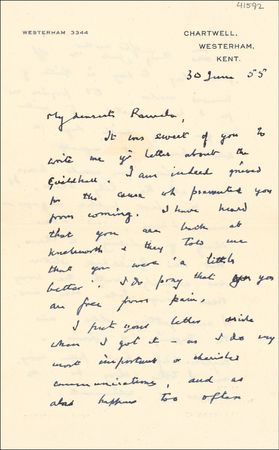 41592
WESTERHAM 3344
CHARTWELL,
WESTERHAM,
KENT.
30 June 55
My dearest Pamela,
It was sweet of you to
write me yr letter about the
Guildhall. I am indeed grieved
for the cause wh prevented you
from coming. I have heard
that you are back at
Knebworth & they told me
that you were 'a little
better'. I do pray that you
are free from pain.
I put your letter aside
when I got it - as I do my
most important or cherished
communications, and as
also happens too often